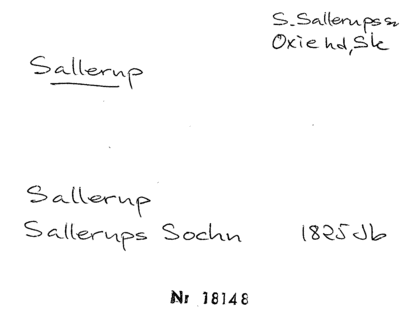 S. Sallerups sn
Oxie hd, Sk
Sallerup
Sallerup
Sallerups Sochn 1825 Jb
Nr 18148